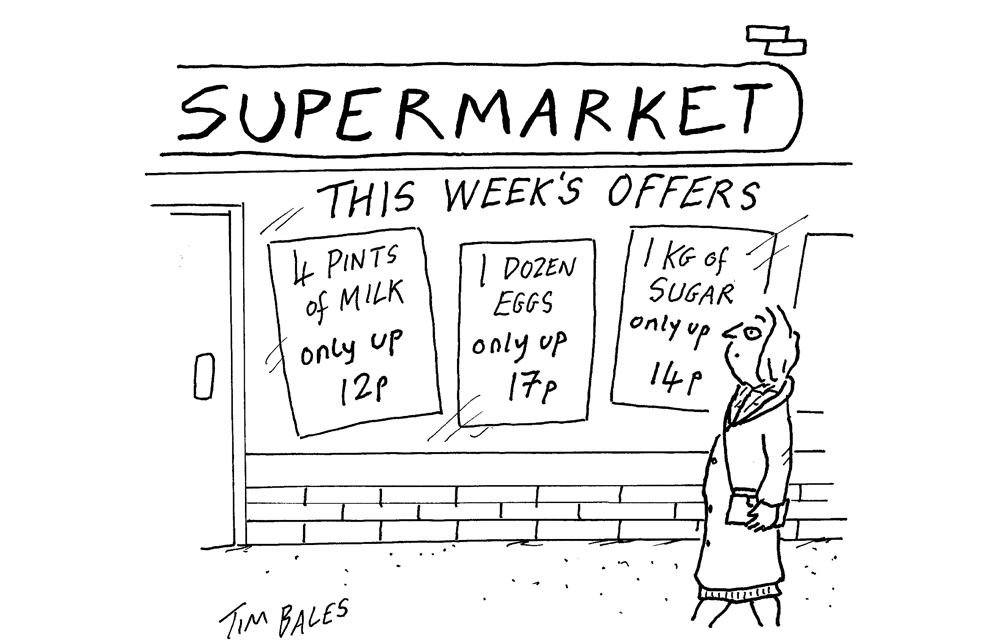 SUPERMARKET
THIS WEEK'S OFFERS
4 PINTS
of MILK
only up
12p
1 DOZEN
EGGS
only up
17p
1 KG of
SUGAR
only up
14p
TIM BALES